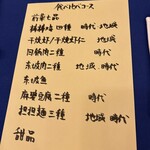 食べ比べコース
前菜七品
辣椒鶏 四種 時代 地域
干焼虾/干焼虾仁 地域
回鍋肉二種 時代
東坡肉二種 地域 時代
東坡魚
麻婆豆腐二種 時代
担担麺三種 地域 時代
甜品